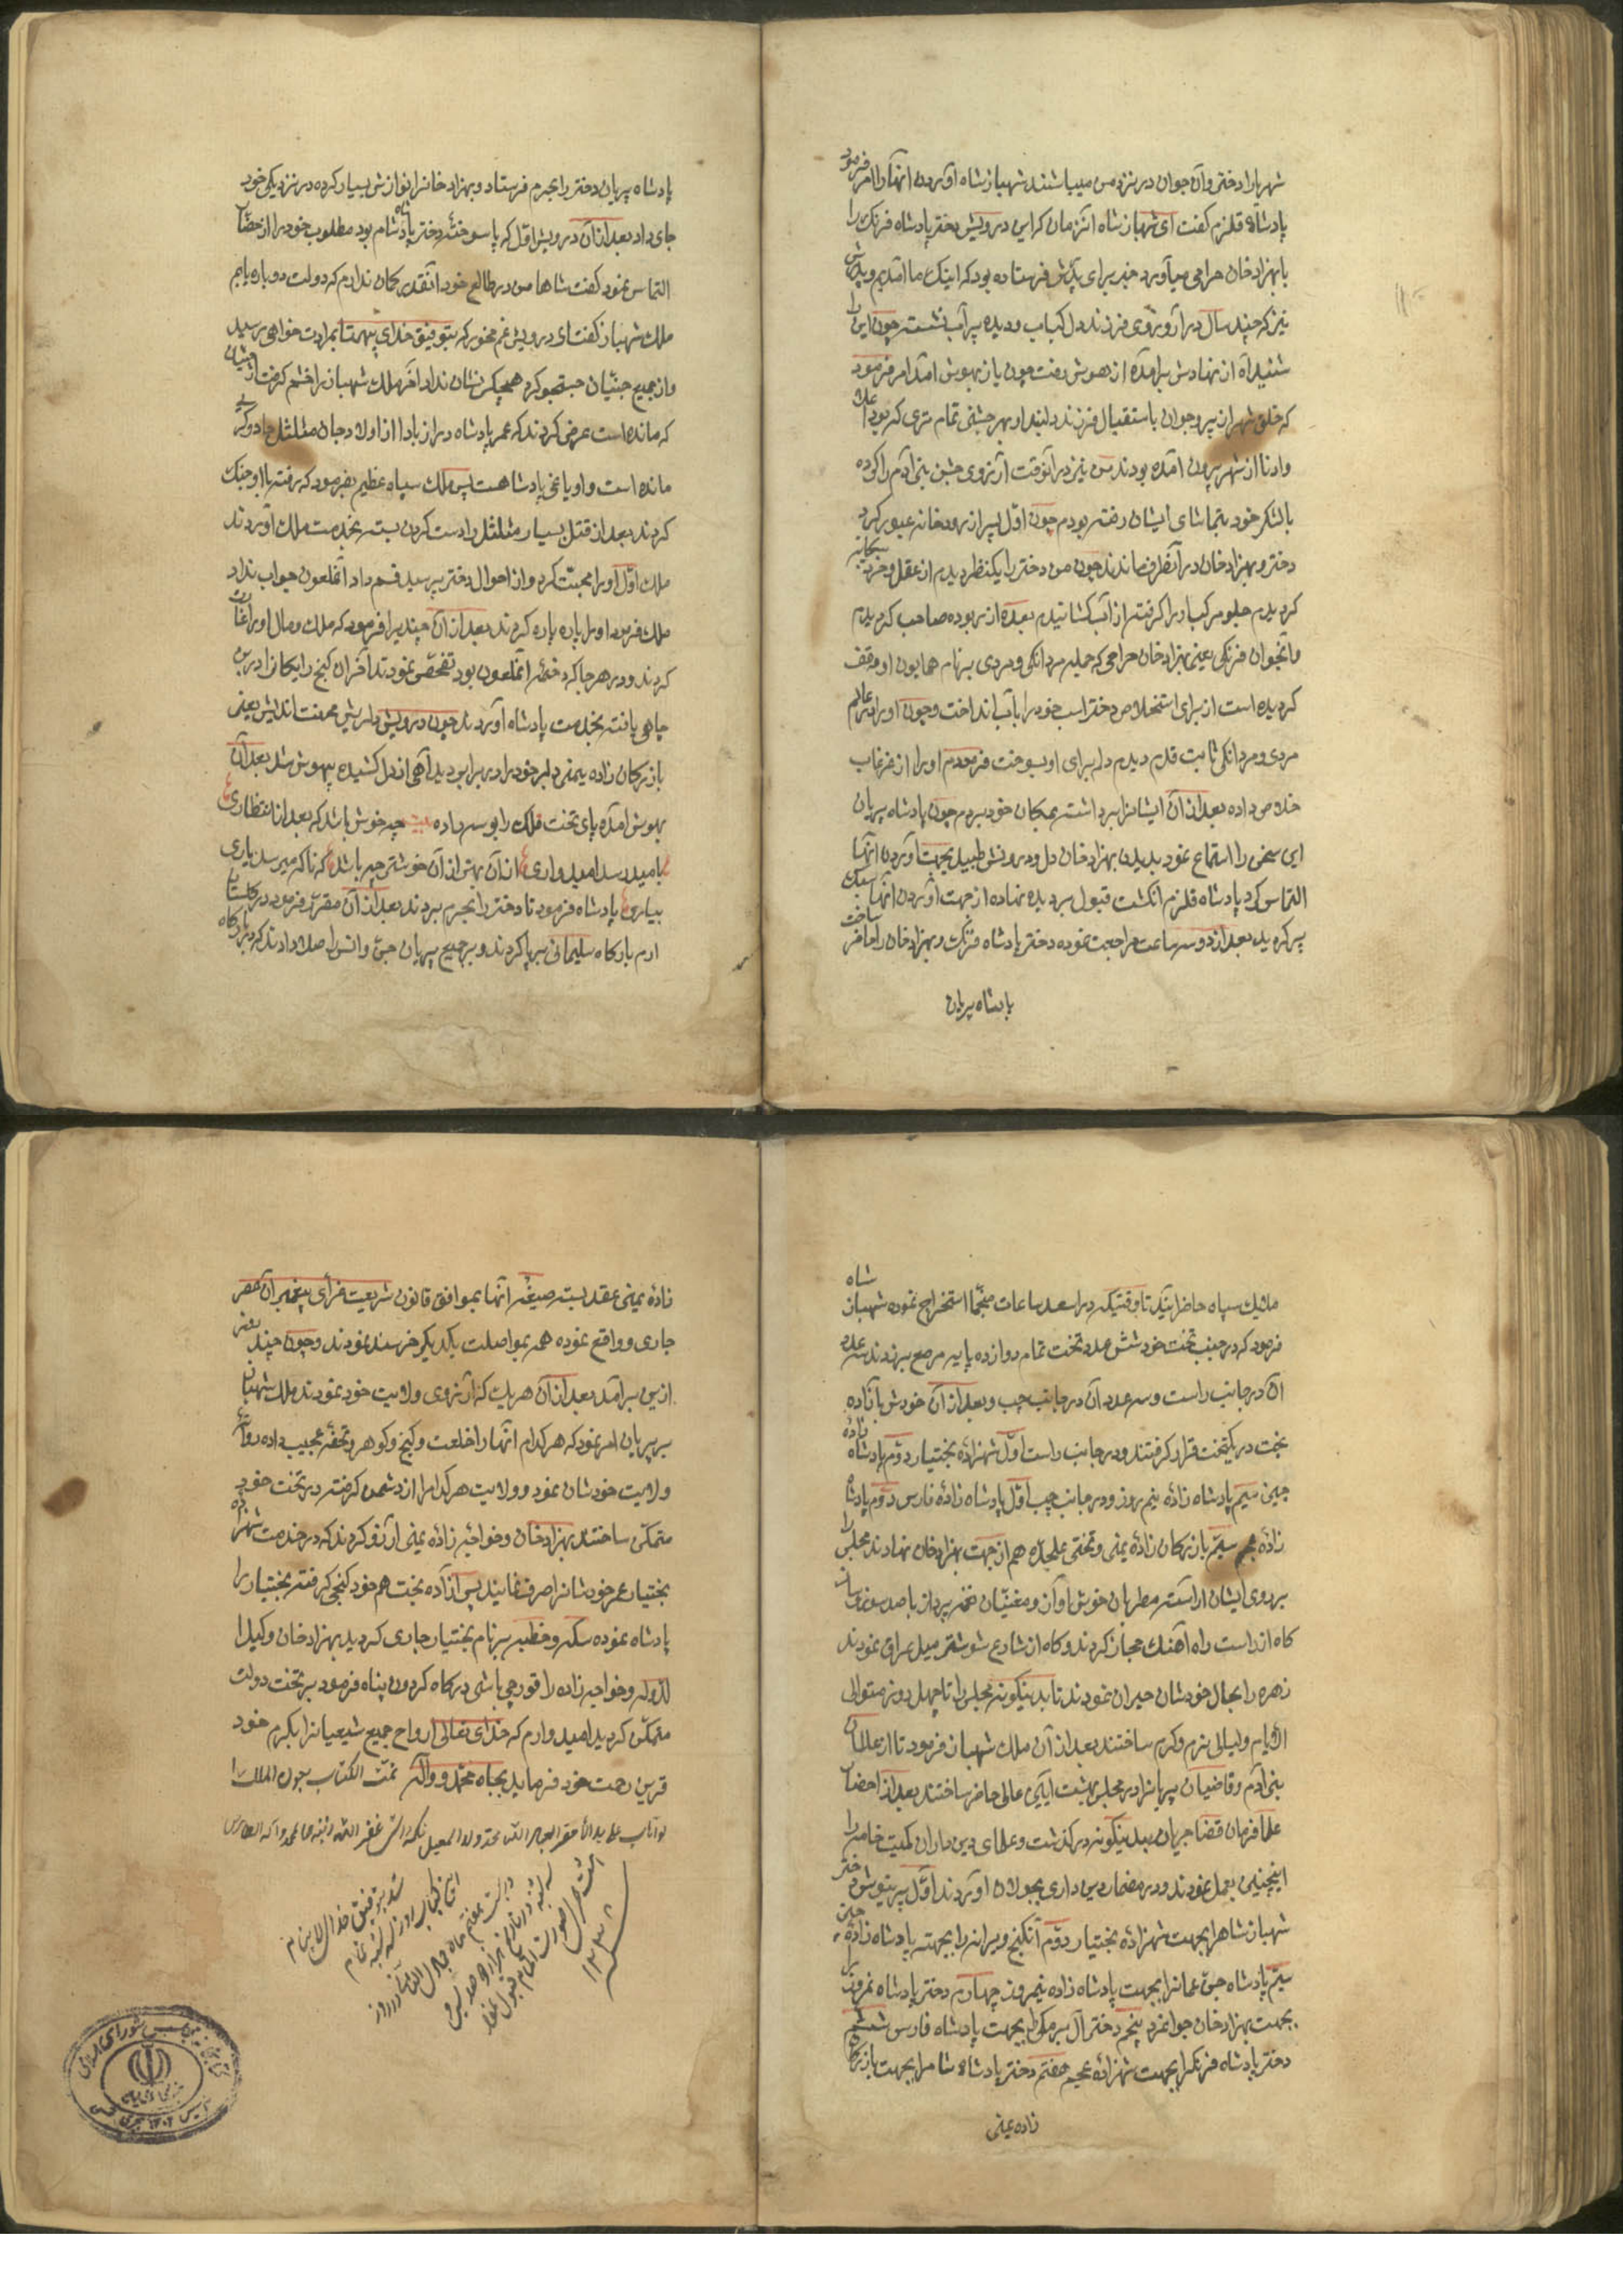 شهریارا دختر و آن جوان در نزد من میباشند شهباز شاه آوردن آنها را امر فرمود
پادشاه قلزم گفت ای شهباز شاه آنزمان که این درویش دختر پادشاه فرنک را
با بهزاد خان حرامی میآورد خبر برای پدرش فرستاده بود که اینک ما آمدیم و پدرش
نیز که چند سال در آرزوی فرزند دل کباب و دیده پر آب نشسته چون این را
شنید آه از نهادش برآمده از هوش رفت چون باز بهوش آمد امر فرمود
که خلق شهر از پیر و جوان باستقبال فرزند دلبند او بهر جشنی تمام تری که بود اعلا
و ادنا از شهر بیرون آمده بودند من نیز در آنوقت آرزوی جشن بنی آدم را کرده
با لشکر خود بتماشای ایشان رفته بودم چون اوّل پسر از رودخانه عبور کرد
دختر و بهزاد خان در آنطرف ماندند چون من دختر را یکنظر دیدم از عقل و خرد بیگانه
کردیدم جلو مرکب او را کرفته از آب کشانیدم بعده از ربوده صاحب کردیدم
و آنجوان فرنکی یعنی بهزاد خان حرامی که جمله مردانکی و مردی بر نام همایون او موقف
کردیده است از برای استخلاص دختر اسب خود را بآب انداخت و چون او را در عالم
مردی و مردانکی ثابت قدم دیدم دلم برای او بسوخت فرمودم او را از غرغاب
خلاص داده بعد از آن ایشانرا برداشته بمکان خود بردم چون پادشاه پریان
این سخن را استماع نمود بدیدن بهزاد خان دل و درونش طپید بجهت آوردن آنها
التماس کرد پادشاه قلزم انکشت قبول بر دیده نهاده از جهت آوردن آنها سبک
پر کردید بعد از دو سه ساعت مراجعت نموده دختر پادشاه فرنک و بهزاد خان را حاضر ساخت
پادشاه پریان
پادشاه پریان دختر را بحرم فرستاد و بهزاد خانرا نوازش بسیار کرده در نزدیکی خود
جای داد بعد از آن درویش اوّل که پا سوخته دختر پادشاه شام بود مطلوب خود را از حضّار
التماس نمود کفت شاها من در طالع خود آنقدر کمان ندارم که دولت دوباره یابم
ملک شهباز کفت ای درویش غم مخور که بتوفیق خدای بیهمتا بمرادت خواهی رسید
و از جمیع جنّیان جستجو کرد هیچکس نشان نداد آخر ملک شهباز را خشم کرفت از جنیان
که مانده است عرض کردند که عمر پادشاه دراز بادا از اولاد جان مثلثل جادوکر
مانده است و او یاغی پادشاهست پس ملک سپاه عظیم بفرمود که رفته با او جنک
کردند بعد از قتل بسیار مثلثل را دست کردن بسته بخدمت ملک آوردند
ملک اوّل او را محبّت کرد و از احوال دختر پرسید قسم داد آنملعون جواب نداد
ملک فرمود او را پاره پاره کردند بعد از آن چند را فرمود که ملک و مال او را غارت
کردند و در هر جا که دخمه آنملعون بود تفحّص نمودند آخر آن کنج رایکانرا در بن
چاهی یافته بخدمت پادشاه آوردند چون درویش دلریش محنت اندیش یعنی
بازرکان زاده یمنی دلبر خود را در برابر دید آهی از دل کشیده بیهوش شد بعد از آن
بهوش آمده پای تخت ملک را بوسه داده بیت چه خوش باشد که بعد از انتظاری
بامید رسد امیدواری ازان بهتر از آن خوشتر چه باشد که ناکه میرسد یاری
بیاری پادشاه فرمود تا دختر را بحرم بردند بعد از آن مقرّر فرمود در کلستان
ارم بارکاه سلیمانی برپا کردند و بر جمیع پریان جنّ و انس را صلا دادند که در بارکاه
ملایک سپاه حاضر آیند تا وقتیکه در اسعد ساعات منجّما استخراج نموده شهباز شاه
فرمود که در جنب تخت خود شش عدد تخت تمام دوازده پایه مرصع بر زدند سه عدد
آن در جانب راست و سه عدد آن در جانب چپ و بعد از آن خودش با آزاده
بخت در یکتخت قرار کرفتند و در جانب راست اوّل شهزاده بختیار دوّم پادشاه زاده
چین سیّم پادشاه زاده نیم روز و در جانب چپ اوّل پادشاه زاده فارس دوّم پادشاه
زاده عجم سیّم بازرکان زاده یمنی و تختی علیحدّه هم از جهت بهزاد خان نهادند مجلس را
بر روی ایشان آراسته مطربان خوش آواز و مغنّیان نغمه پرداز با صد سوز و ساز
کاه از راست راه آهنک حجاز کردند و کاه از شارع شوشتر میل عراق نمودند
زهره را بحال خودشان حیران نمودند تا بدینکونه مجلس را تا چهل روز متوالی
الایام و لیالی بزم و کرم ساختند بعد از آن ملک شهباز فرمود تا از علمای
بنی آدم و قاضیان پریانرا در مجلس بهشت آیین عالی حاضر ساختند بعد از احضار
علما فرمان قضا جریان بدینکونه در کذشت و علمای دین داران کمیت خامه را
اینچنین بعمل نمودند و در مضمار دین داری بجولان آوردند اوّل پرینوش دختر
شهباز شاهرا بجهت شهزاده بختیار دوّم آنکنج ویرانه را بجهته پادشاه زاده چین
سیّم پادشاه جنّ عمانرا بجهت پادشاه زاده نیمروز چهارم دختر پادشاه نمروز را
بجهت بهزاد خان جوانمرد پنجم دختر آل بر مکرا بجهت پادشاه فارس ششم
دختر پادشاه فرنکرا بجهت شهزاده عجم هفتم دختر پادشاه شامرا بجهت بازرکان
زاده یمنی
زاده یمنی عقد بسته صیغه آنها بموافق قانون شریعت غرّای پیغمبر آن عصر
جاری و واقع نموده همه بمواصلت یکدیکر خرسند نمودند و چون چند روز
ازین برآمد بعد از آن هر یک که آرزوی ولایت خود نمودند ملک شهباز
بر پریان امر نمود که هر کدام آنها را خلعت و کنج و کوهر و تحفه عجیب داده روانه
ولایت خودشان نمود و ولایت هر کدامرا از دشمن کرفته در تخت خود
متمکّن ساختند بهزاد خان و خواجه زاده یمنی آرزو کردند که در خدمت شهزاده
بختیار عمر خودشانرا صرف نمایند پس آزاده بخت هم خود کنجی کرفته بختیار را
پادشاه نموده سکّه و خطبه بر نام بختیار جاری کردید بهزاد خان وکیل ا
لدّوله و خواجه زاده را قورچی باشی درکاه کردون پناه فرمود بر تخت دولت
متمکّن کردید امیدوارم که خدای تعالی ارواح جمیع شیعیانرا بکرم خود
قرین رحمت خود فرماید بجاه محمّد و وآله تمّت الکتاب بعون الملک ا
لوهاب علی ید الاحقر
شد بتوفیق خدای لاینام
این کتاب روز سه شنبه تمام
در بیست هفتم ماه
۱۲۳۸